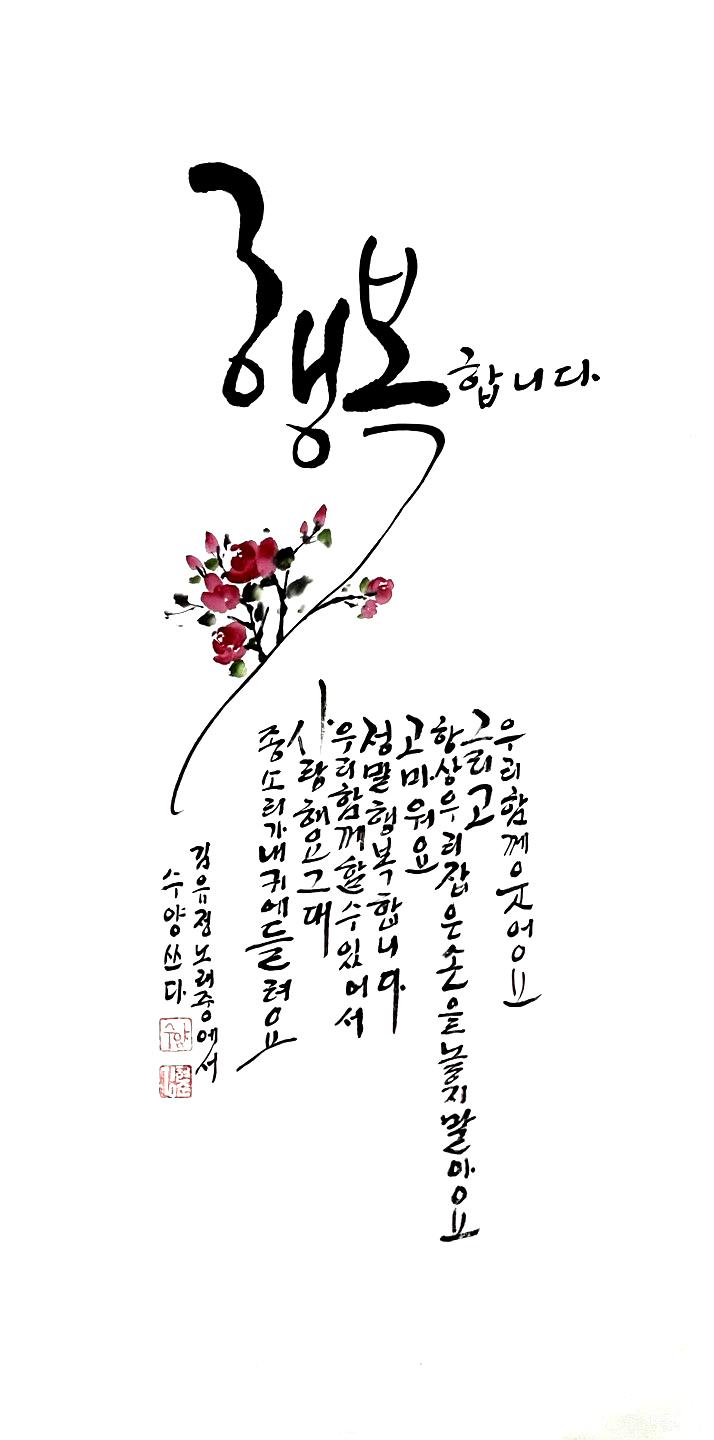 행복합니다.
우리함께웃어요
그리고
항상우리잡은손을놓지말아요
고마워요
정말행복합니다.
우리함께할수있어서
사랑해요그대
종소리가내귀에들려요
김유정노래중에서
수양쓰다.